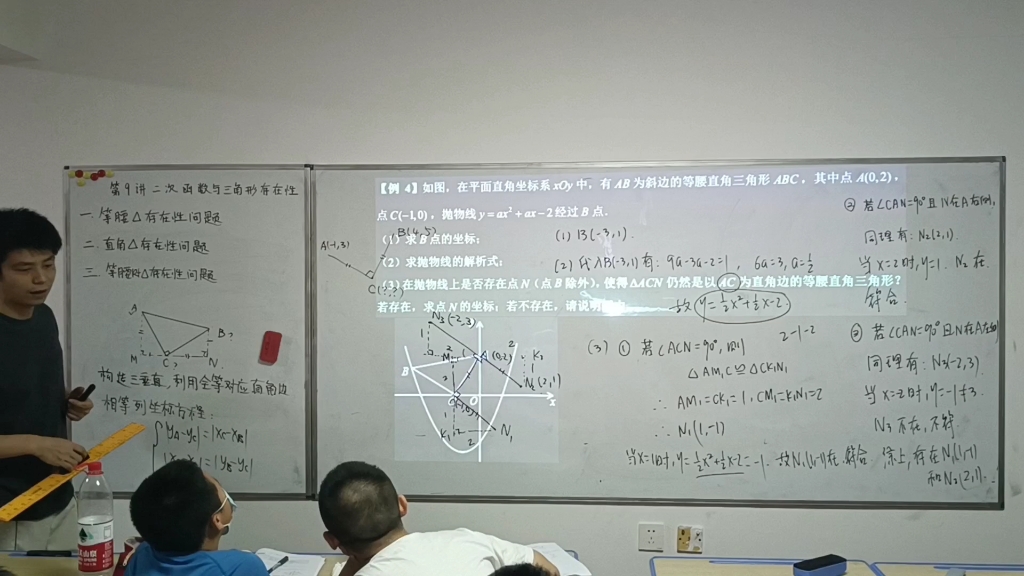 第9讲 二次函数与三角形存在性
一. 等腰△存在性问题
二. 直角△存在性问题
三. 等腰Rt△存在性问题
A
B
M
C
N
构造三垂直,利用全等对应直角边
相等列坐标方程:
|yA-yC|=|xC-xB|
|=|yB-yC|
【例 4】如图,在平面直角坐标系 xOy 中,有 AB 为斜边的等腰直角三角形 ABC,其中点 A(0,2),
点 C(-1,0),抛物线 y=ax²+ax-2 经过 B 点.
(1)求 B 点的坐标;
(2)求抛物线的解析式;
(3)在抛物线上是否存在点 N(点 B 除外),使得 ΔACN 仍然是以 AC 为直角边的等腰直角三角形?
若存在,求点 N 的坐标;若不存在,请说明
A(-1,3)
B(4,5)
(1) B(-3,1).
(2) 代入B(-3,1)有: 9a-3a-2=1, 6a=3, a=½
y=½x²+½x-2
N3(-2,3)
A
(0,2)
B
K2
N2(2,1)
x
K1
N1
(3) ① 若∠ACN=90°, 则
2-1-2
△AM1C≌△CK1N1
∴ AM1=CK1=1, CM1=K1N1=2
∴ N1(1,-1)
当x=1时, y=½x²+½x-2=-1. 故N1(1,-1)在. 符合
② 若∠CAN=90°且N在A右侧,
同理有: N2(2,1).
当x=2时, y=1. N2在.
符合.
若∠CAN=90°且N在A左侧
同理有: N3(-2,3)
当x=-2时, y=-1≠3.
N3不在,不符
综上,存在N1(1,-1)
和N2(2,1).